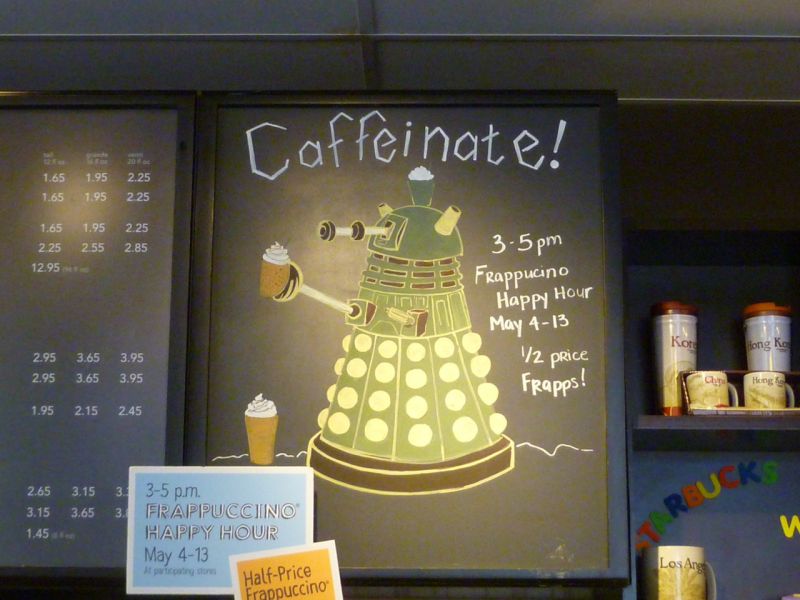 tall grande venti
12 fl oz 16 fl oz 20 fl oz
1.65 1.95 2.25
1.65 1.95 2.25
1.65 1.95 2.25
2.25 2.55 2.85
12.95 (96 fl oz)
2.95 3.65 3.95
2.95 3.65 3.95
1.95 2.15 2.45
2.65 3.15
3.15 3.65
1.45 (8 fl oz)
Caffeinate!
3-5pm
Frappucino
Happy Hour
May 4-13
1/2 price
Frapps!
3-5 p.m.
FRAPPUCCINO®
HAPPY HOUR
May 4-13
At participating stores
Half-Price
Frappuccino®
Korea
Hong Kong
China
Hong Kong
STARBUCKS
W
Los Ange